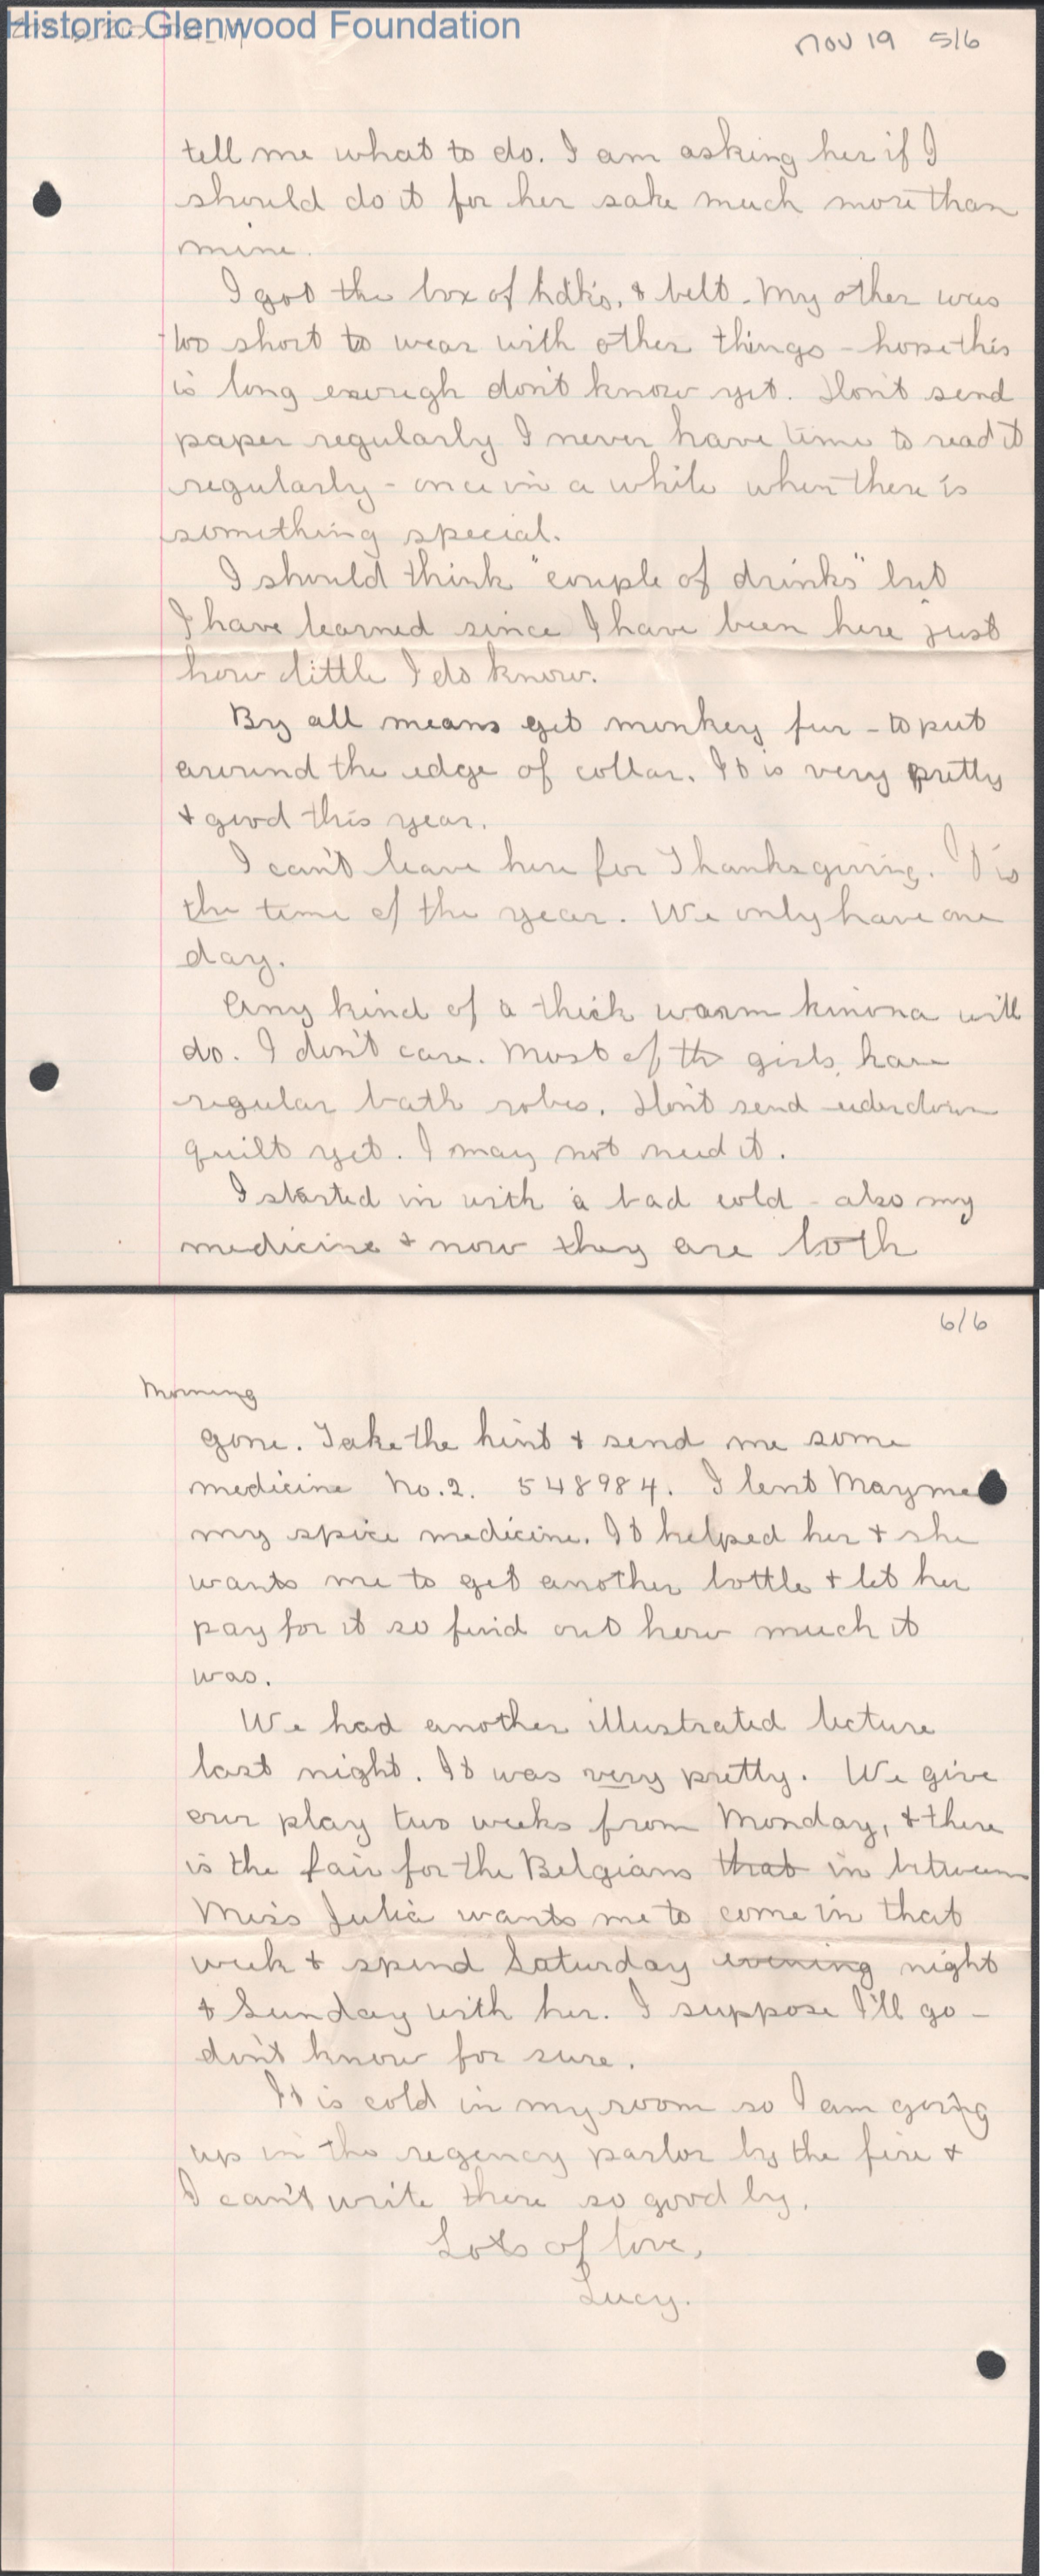 Historic Glenwood Foundation
Nov 19 5/6
tell me what to do. I am asking her if I
should do it for her sake much more than
mine.
I got the box of hdk's. & belt. My other was
too short to wear with other things - hope this
is long enough don't know yet. Don't send
paper regularly I never have time to read it
regularly - once in a while when there is
something special.
I should think "couple of drinks" but
I have learned since I have been here just
how little I do know.
By all means get monkey fur - to put
around the edge of collar. It is very pretty
& good this year.
I can't leave here for Thanksgiving. It is
the time of the year. We only have one
day.
Any kind of a thick warm kimona will
do. I don't care. Most of the girls have
regular bath robes. Don't send eiderdown
quilt yet. I may not need it.
I started in with a bad cold - also my
medicine & now they are both
6/6
Morning
gone. Take the hint & send me some
medicine No. 2. 548984. I lent Mayme
my spice medicine. It helped her & she
wants me to get another bottle & let her
pay for it so find out how much it
was.
We had another illustrated lecture
last night. It was very pretty. We give
our play two weeks from Monday, & there
is the fair for the Belgians that in between
Miss Julia wants me to come in that
week & spend Saturday evening night
& Sunday with her. I suppose I'll go -
don't know for sure.
It is cold in my room so I am going
up in the regency parlor by the fire &
I can't write there so good by.
Lots of love,
Lucy.